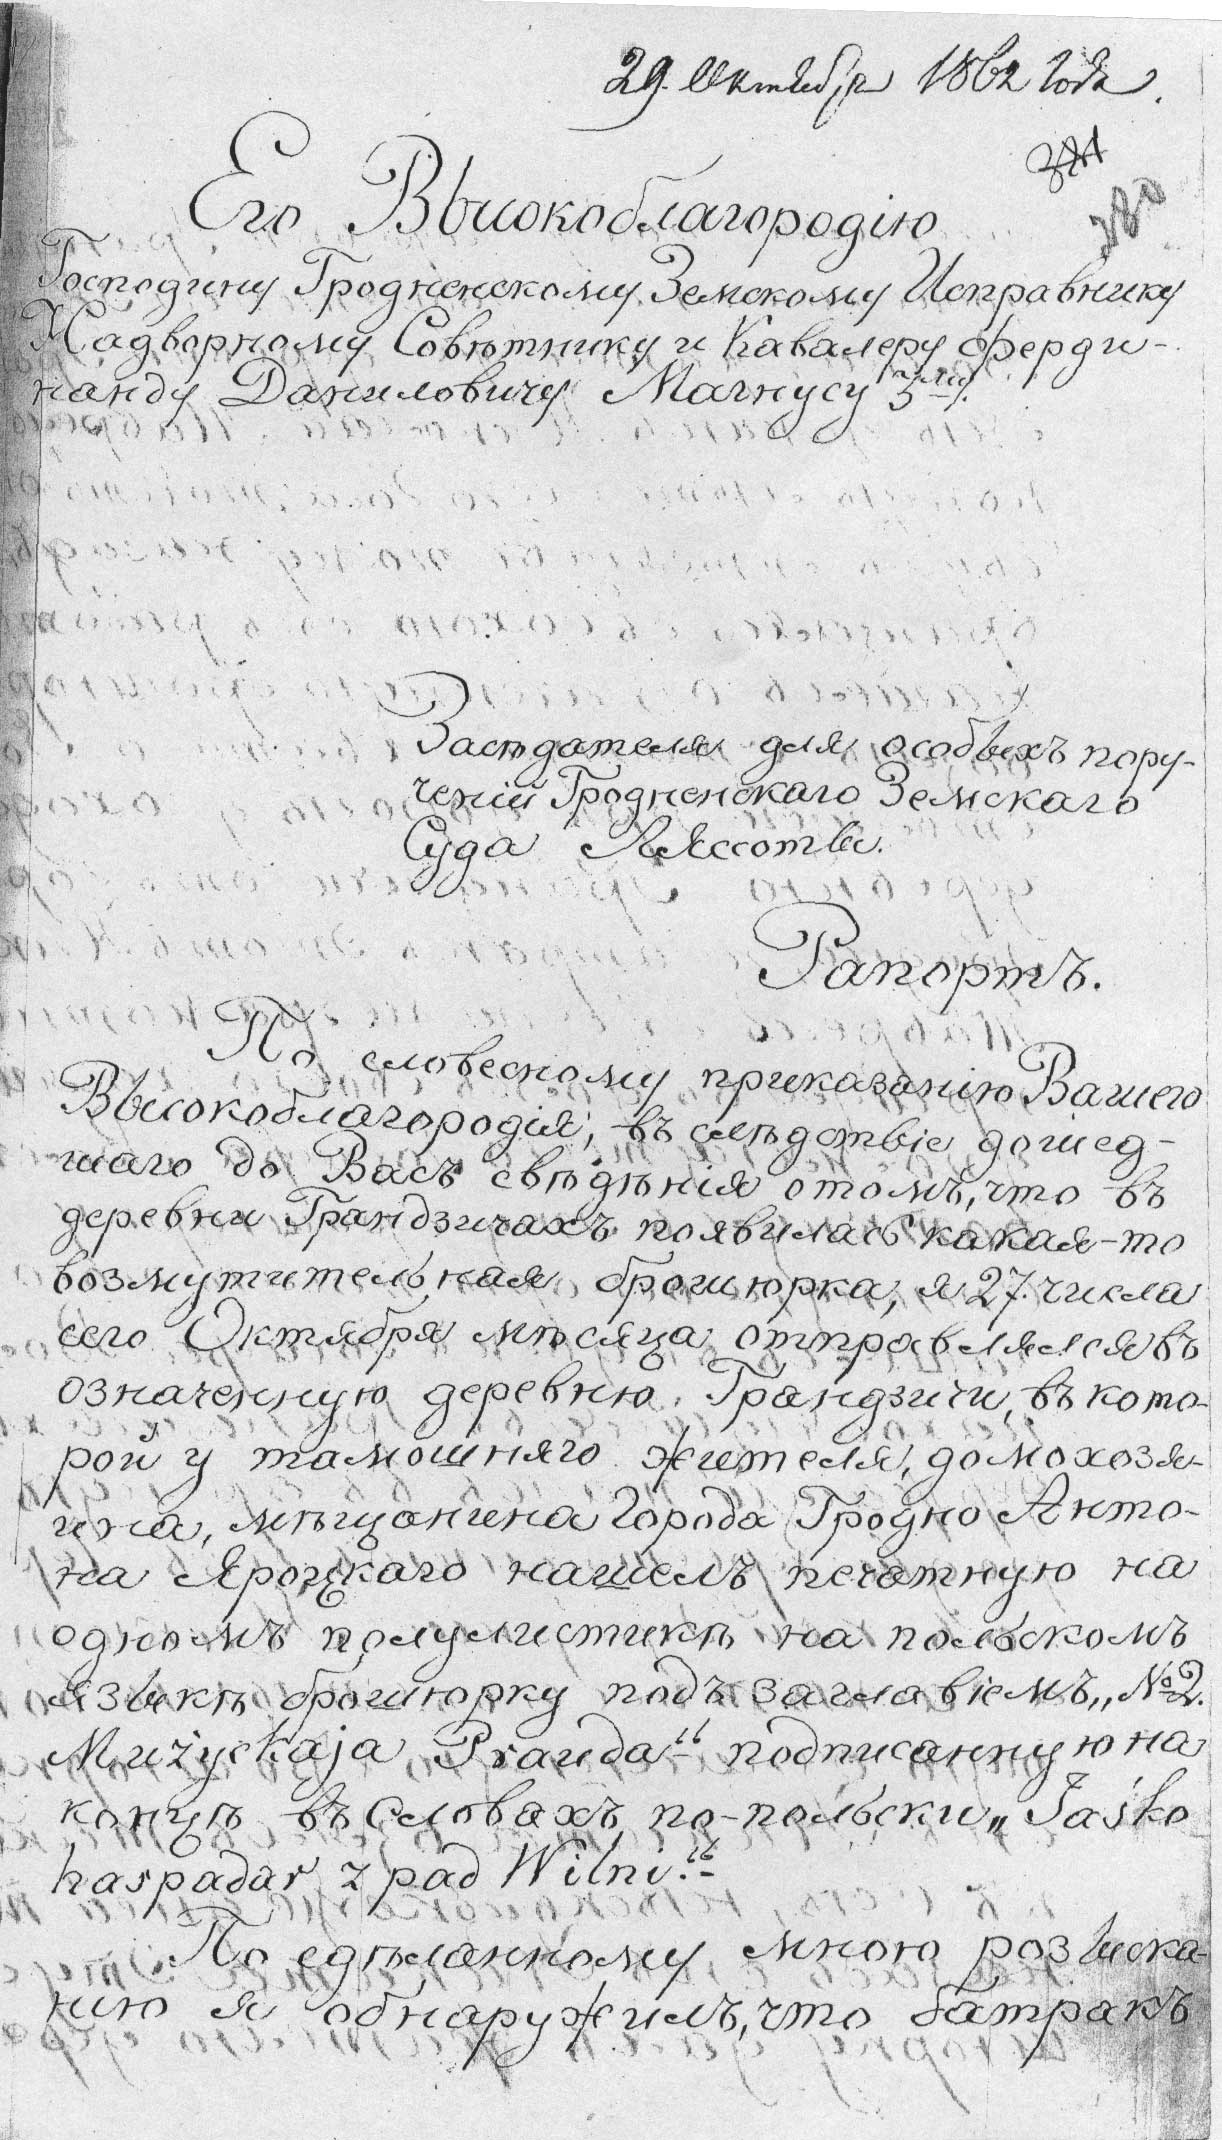 29. Октября 1862 года.
321
380
Его Высокоблагородію
Господину Гродненскому Земскому Исправнику
Надворному Совѣтнику и Кавалеру Ферди-
нанду Даниловичу Магнусу 3му.
Засѣдателя для особыхъ пору-
ченій Гродненскаго Земскаго
Суда Ляссоты.
Рапортъ.
По словесному приказанію Вашего
Высокоблагородія, въ слѣдствіе дошед-
шаго до Васъ свѣдѣнія отомъ, что въ
деревни Грандзичахъ появилась какая-то
возмутительная брошюрка, я 27. числа
сего Октября мѣсяца отправлялся въ
означенную деревню Грандзичи, въ кото-
рой у тамошняго жителя, домохозя-
ина, мѣщанина Города Гродно Анто-
на Яроцкаго нашелъ печатную на
одномъ полулистикѣ на польскомъ
языкѣ брошюрку подъ заглавіемъ „№ 2.
Mużyckaja Prauda“ подписанную на
концѣ въ Словахъ по-польски „Jaśko
haspadar z pad Wilni.“
По сдѣланному мною розыска-
нию я обнаружилъ, что батракъ